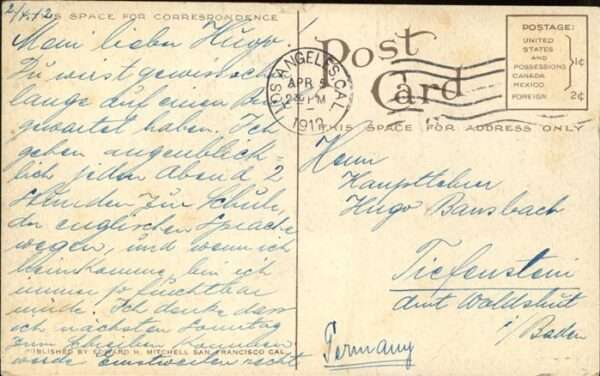 2/4.12
THIS SPACE FOR CORRESPONDENCE
Mein lieber Hugo.
Du wirst gewiss schon
lange auf einen Brief
gewartet haben. Ich
gehen augenblick-
lich jeden Abend 2
Stunden zur Schule,
der englischen Sprache
wegen, und wenn ich
heimkomme, bin ich
immer so furchtbar
müde. Ich denke dass
ich nächsten Sonntag
zum schreiben kommen
werde Einstweilen recht
PUBLISHED BY EDWARD H. MITCHELL SAN FRANCISCO CAL.
Post
Card
LOS ANGELES, CAL.
APR 5
2 PM
1912
POSTAGE:
UNITED
STATES
AND
POSSESSIONS
CANADA
MEXICO
1¢
FOREIGN 2¢
THIS SPACE FOR ADDRESS ONLY
Herrn
Hauptlehrer
Hugo Bansbach
Tiefenstein
Amt Waldshut
i/Baden
Germany